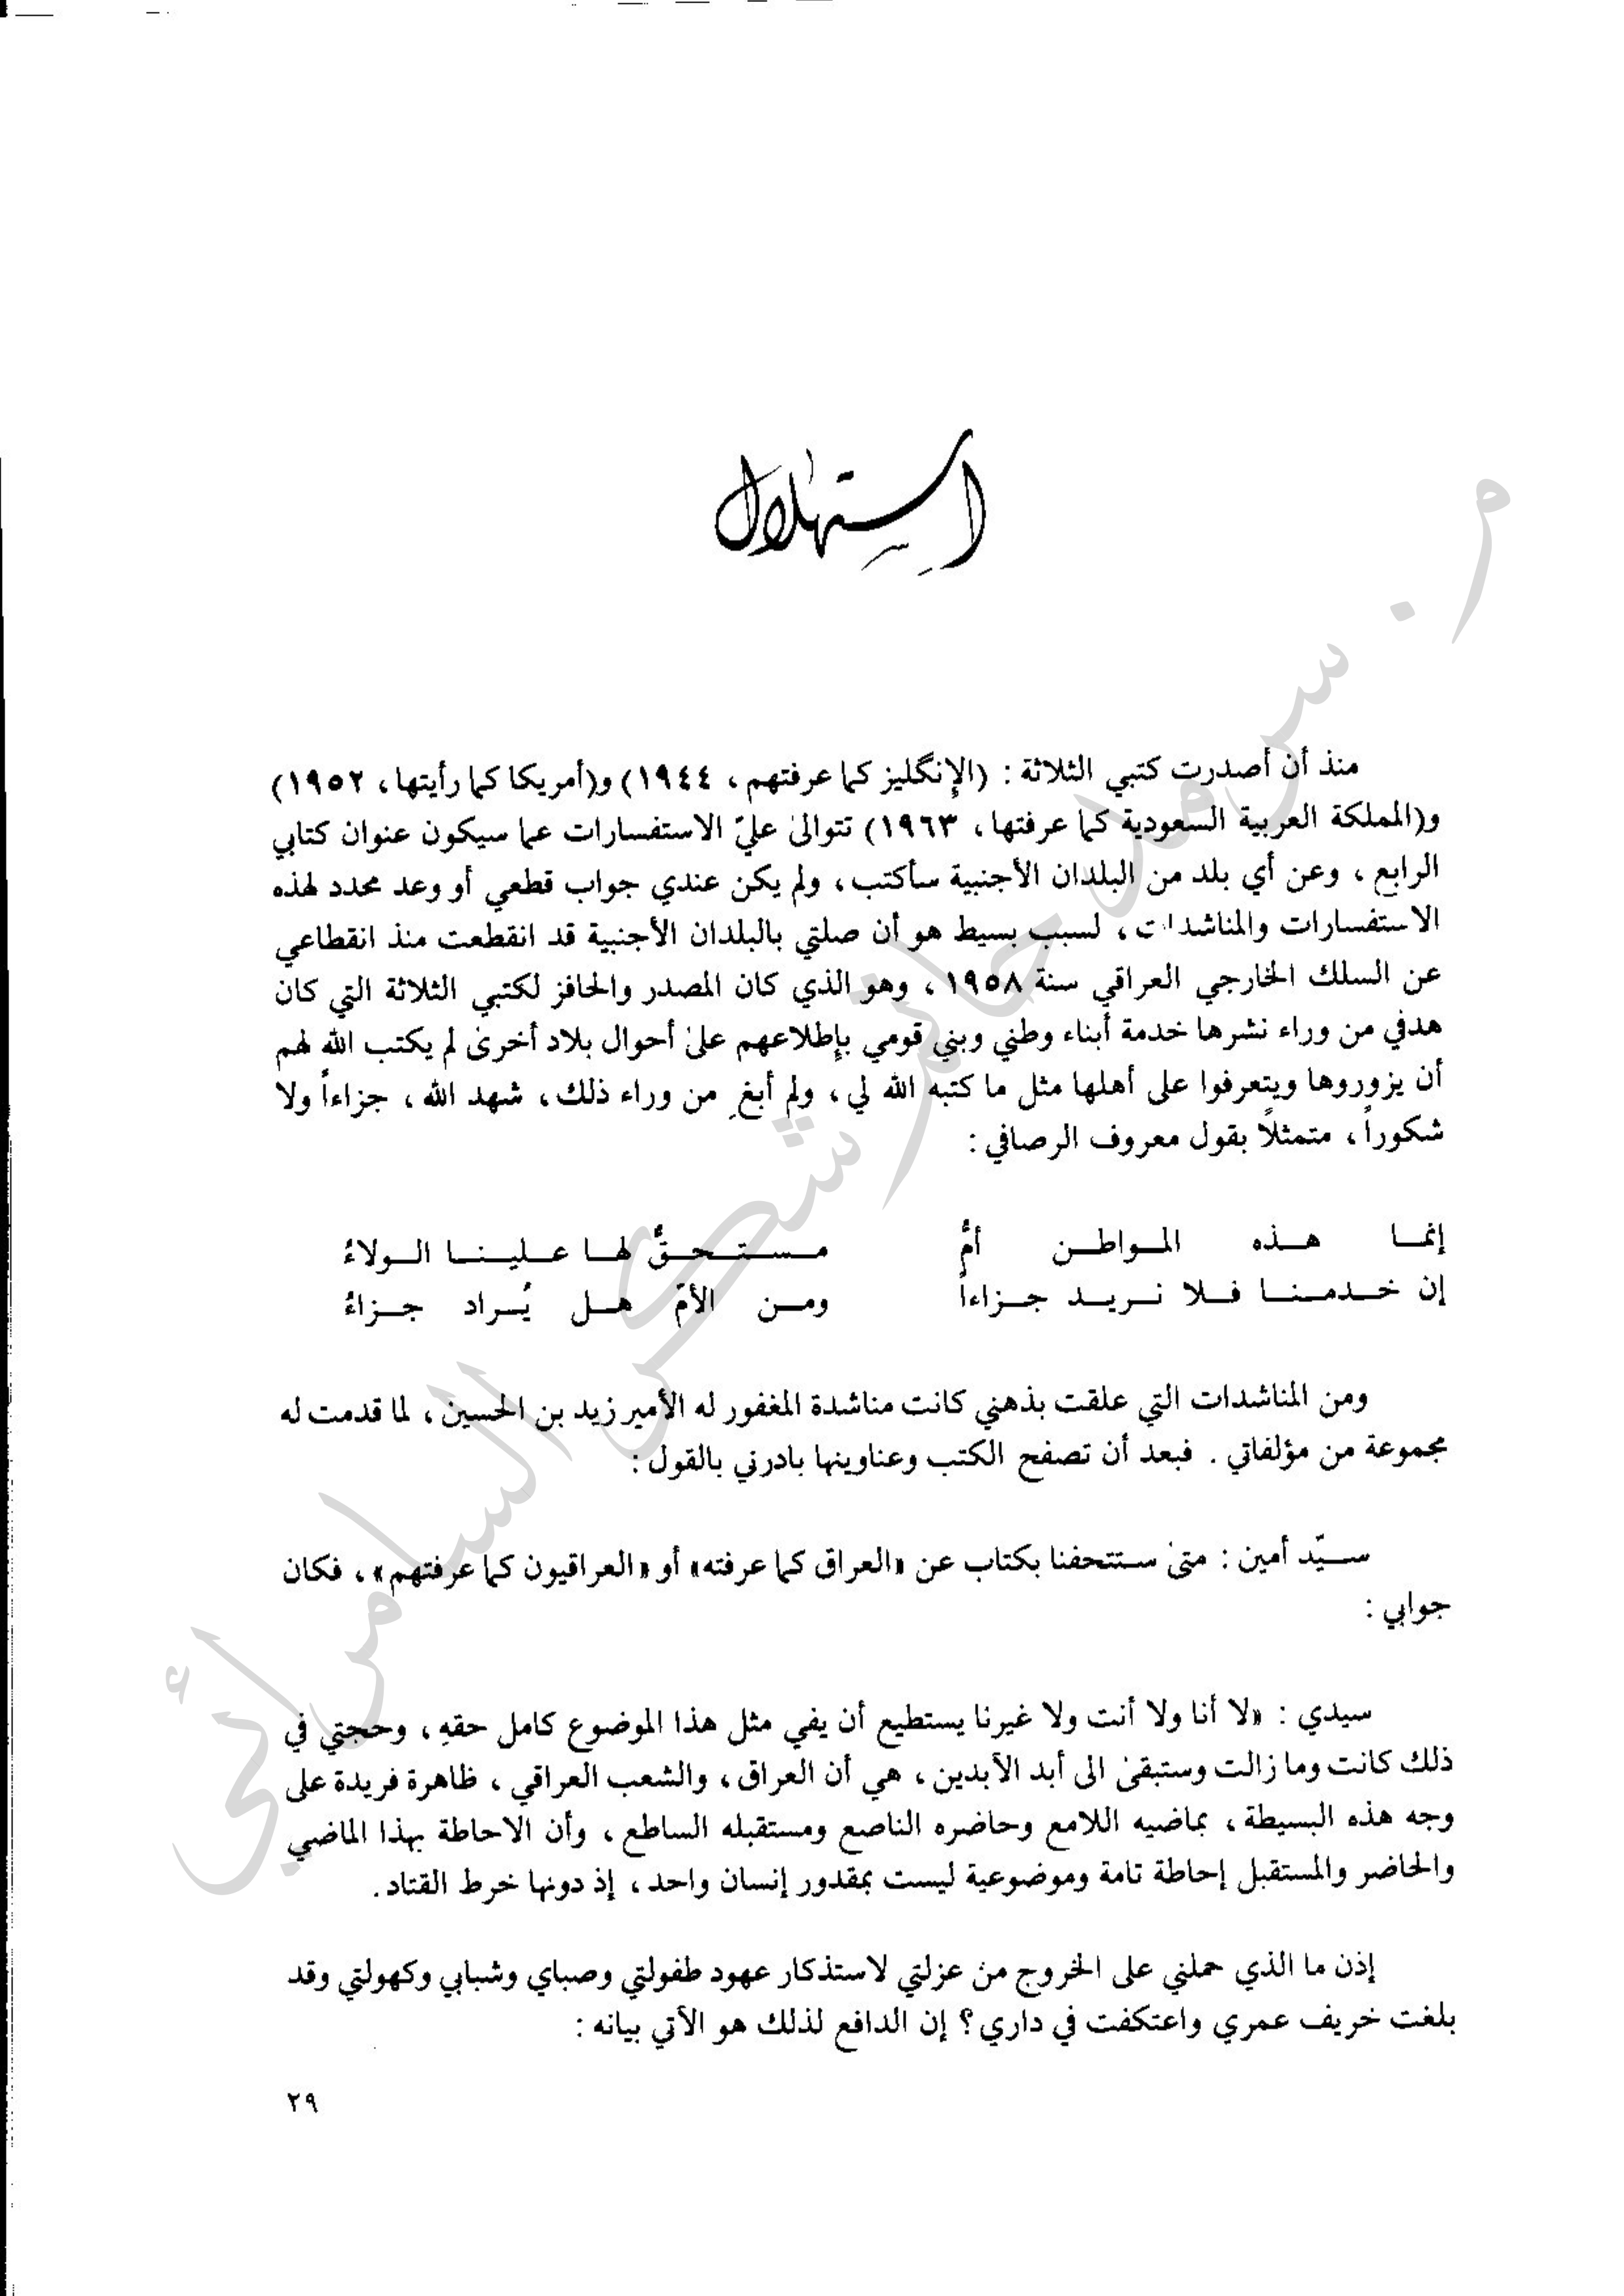 استهلال
منذ أن أصدرت كتبي الثلاثة : (الإنگليز كما عرفتهم ، ١٩٤٤) و(أمريكا كما رأيتها ، ١٩٥٢)
و(المملكة العربية السعودية كما عرفتها ، ١٩٦٣) تتوالىٰ عليّ الاستفسارات عما سيكون عنوان كتابي
الرابع ، وعن أي بلد من البلدان الأجنبية سأكتب ، ولم يكن عندي جواب قطعي أو وعد محدد لهذه
الاستفسارات والمناشدات ، لسبب بسيط هو أن صلتي بالبلدان الأجنبية قد انقطعت منذ انقطاعي
عن السلك الخارجي العراقي سنة ١٩٥٨ ، وهو الذي كان المصدر والحافز لكتبي الثلاثة التي كان
هدفي من وراء نشرها خدمة أبناء وطني وبني قومي بإطلاعهم علىٰ أحوال بلاد أخرىٰ لم يكتب الله لهم
أن يزوروها ويتعرفوا على أهلها مثل ما كتبه الله لي ، ولم أبغِ من وراء ذلك ، شهد الله ، جزاءاً ولا
شكوراً ، متمثلاً بقول معروف الرصافي :
إنما هذه المواطن أمٌّ مستحقٌّ لها علينا الولاءُ
إن خدمنا فلا نريد جزاءاً ومن الأمّ هل يُراد جزاءُ
ومن المناشدات التي علقت بذهني كانت مناشدة المغفور له الأمير زيد بن الحسين ، لما قدمت له
مجموعة من مؤلفاتي . فبعد أن تصفح الكتب وعناوينها بادرني بالقول :
سيّد أمين : متىٰ ستتحفنا بكتاب عن «العراق كما عرفته» أو «العراقيون كما عرفتهم» ، فكان
جوابي :
سيدي : «لا أنا ولا أنت ولا غيرنا يستطيع أن يفي مثل هذا الموضوع كامل حقهِ ، وحجتي في
ذلك كانت وما زالت وستبقىٰ الى أبد الآبدين ، هي أن العراق ، والشعب العراقي ، ظاهرة فريدة على
وجه هذه البسيطة ، بماضيه اللامع وحاضره الناصع ومستقبله الساطع ، وأن الاحاطة بهذا الماضي
والحاضر والمستقبل إحاطة تامة وموضوعية ليست بمقدور إنسان واحد ، إذ دونها خرط القتاد .
إذن ما الذي حملني على الخروج من عزلتي لاستذكار عهود طفولتي وصباي وشبابي وكهولتي وقد
بلغت خريف عمري واعتكفت في داري؟ إن الدافع لذلك هو الآتي بيانه :
٢٩
م. سرمد حاتم شكر السامرائي